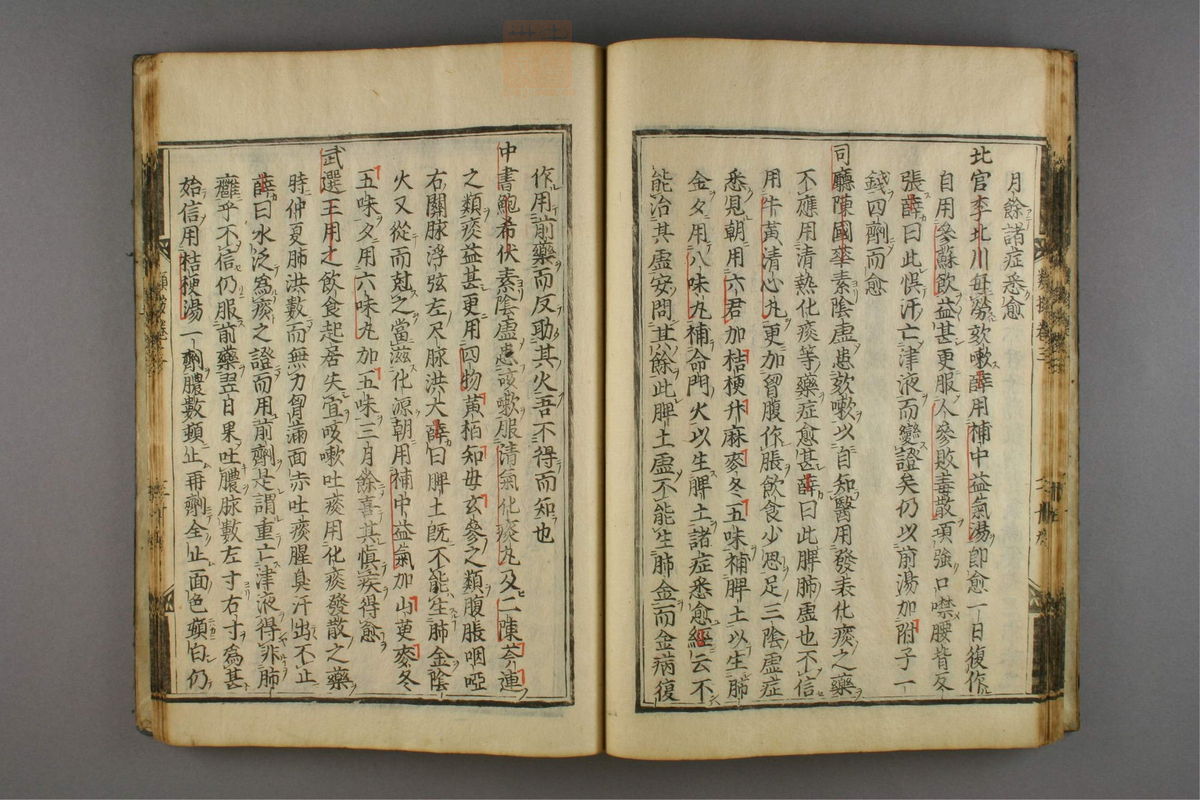 月餘諸症悉愈
北官李北川毎勞欬嗽薛用補中益氣湯即愈一日復作
自用參蘇飲益甚更服人參敗毒散項強口噤腰背反
張薛曰此悞汗亡津液而變證矣仍以前湯加附子一
錢四劑而愈
司廳陳國華素陰虛患欬嗽以自知醫用發表化痰之藥
不應用清熱化痰等藥症愈甚薛曰此脾肺虛也不信
用牛黃清心丸更加胷腹作脹飲食少思足三陰虛症
悉見朝用六君加桔梗升麻麥冬五味補脾土以生肺
金夕用八味丸補命門火以生脾土諸症悉愈經云不
能治其虛安問其餘此脾土虛不能生肺金而金病復
作用前藥而反助其火吾不得而知也
中書鮑希伏素陰虛患咳嗽服清氣化痰丸及二陳芩連
之類痰益甚更用四物黃栢知毋玄參之類腹脹咽啞
右關脉浮弦左尺脉洪大薛曰脾土旣不能生肺金陰
火又從而尅之當滋化源朝用補中益氣加山茱麥冬
五味夕用六味丸加五味三月餘喜其慎疾得愈
武選王用之飲食起居失宜咳嗽吐痰用化痰發散之藥
時仲夏肺洪數而無力胷滿面赤吐痰腥臭汗出不止
薛曰水泛爲痰之證而用前劑是謂重亡津液得非肺
癰乎不信仍服前藥翌日果吐膿脉數左寸右寸爲甚
始信用桔梗湯一劑膿數頓止再劑全止面色頓白仍